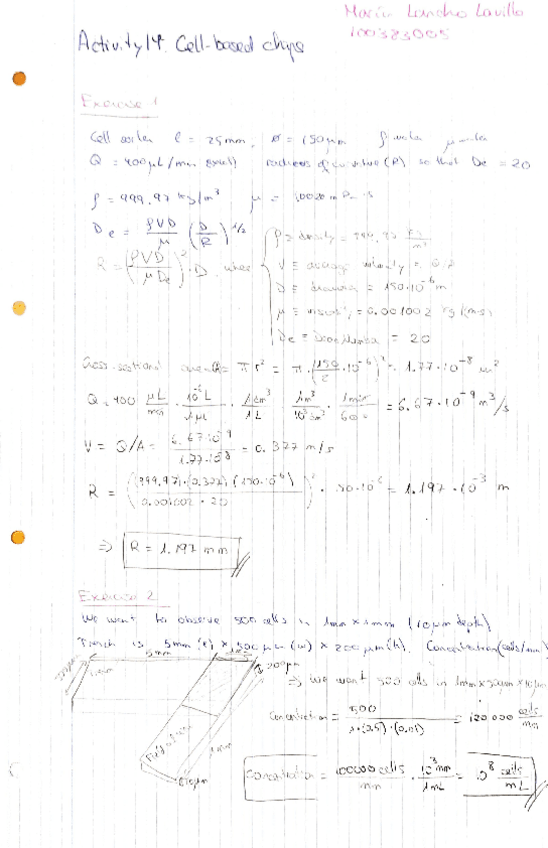 María Lancho Lavilla
100383005
Activity 14: Cell-based chips
Exercise 1
Cell sorter ℓ = 25mm, ø = 150μm ρ water μ water
Q = 400μL/min radius of curvature (R) so that De = 20
ρ = 999.97 kg/m³ μ =
De = ρVD/μ (D/R)^1/2
R = (ρVD/μDe)² · D, where
ρ = density = 999.97 kg/m³
V = average velocity =
D = diameter = 150·10⁻⁶ m
μ = viscosity = 0.001002 kg/(m·s)
De = Dean Number = 20
Cross-sectional area = π r² = π · (150/2 · 10⁻⁶)² = 1.77 · 10⁻⁸ m²
Q = 400 μL/min · 10⁻⁶L/1μL · 1dm³/1L · 1m³/10³dm³ · 1min/60s = 6.67·10⁻⁹ m³/s
V = Q/A = 6.67·10⁻⁹/1.77·10⁻⁸ = 0.377 m/s
R = ((999.97)·(0.377)·(150·10⁻⁶)/0.001002 · 20)² · 150·10⁻⁶ = 1.197 · 10⁻³ m
⇒ R = 1.197 mm
Exercise 2
We want to observe 500 cells in 1mm × 1mm (10μm depth)
Trench is 5mm (ℓ) × 500μm (w) × 200μm (h). Concentration (cells/mL)
5mm
200μm
⇒ We want 500 cells in 1mm × 500μm × 10μm
Concentration = 500/1·(0.5)·(0.01) = cells
10μm
Concentration = 100000 cells/mm · 10³mm/1mL = 10⁸ cells/mL